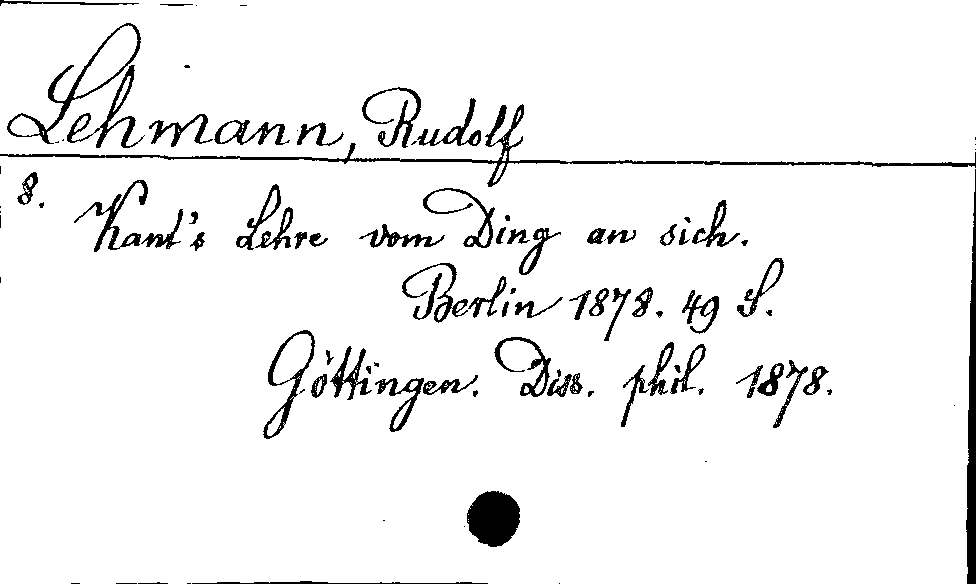 Lehmann, Rudolf
8.
Kant's Lehre vom Ding an sich.
Berlin 1878. 49 S.
Göttingen. Diss. phil. 1878.